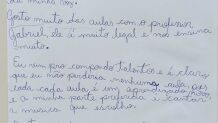 da minha voz.
Gosto muito das aulas com o professor
Gabriel, ele é muito legal e nos ensina
muito.
Eu sempre compondo talentos e é claro
que eu não perderia nenhuma aula pois
cada aula é um aprendizado
e a minha parte preferida é cantar
a musica que escolhe